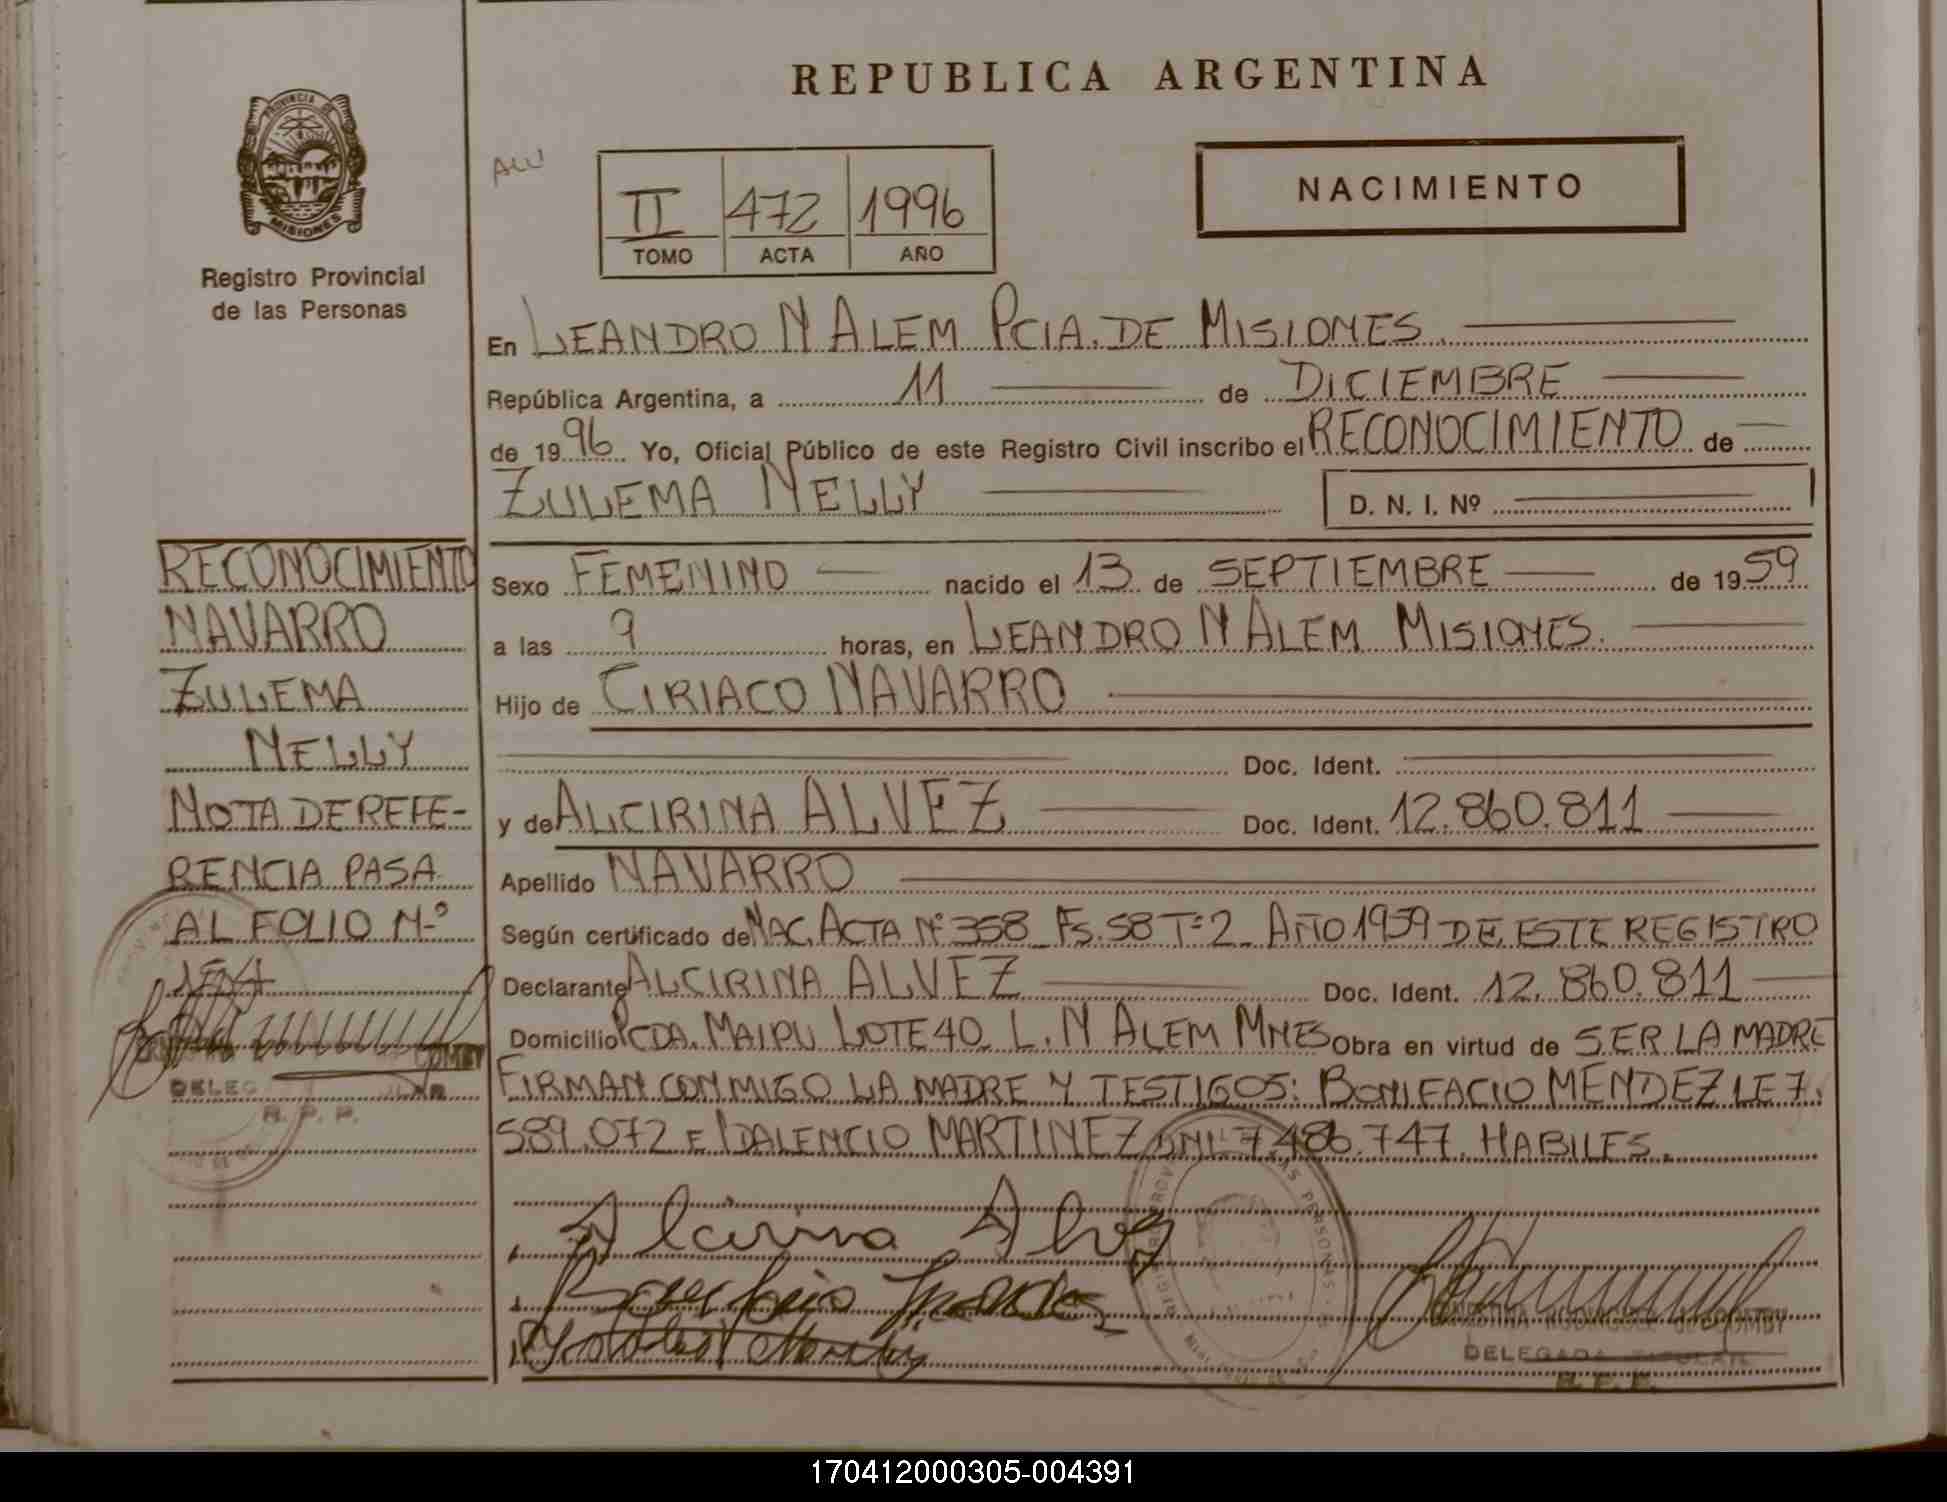 REPUBLICA ARGENTINA
PROVINCIA DE
MISIONES
Registro Provincial
de las Personas
ALU
II 472 1996
TOMO ACTA AÑO
NACIMIENTO
En LEANDRO N ALEM PCIA. DE MISIONES.
República Argentina, a 11 de DICIEMBRE
de 1996 Yo, Oficial Público de este Registro Civil inscribo el RECONOCIMIENTO de
ZULEMA NELLY D. N. I. Nº
Sexo FEMENINO nacido el 13 de SEPTIEMBRE de 1959
a las 9 horas, en LEANDRO N ALEM MISIONES.
Hijo de CIRIACO NAVARRO
Doc. Ident.
y de ALCIRINA ALVEZ Doc. Ident. 12.860.811
Apellido NAVARRO
Según certificado de NAC. ACTA Nº 358 Fs. 58 Tº 2 AÑO 1959 DE ESTE REGISTRO
Declarante ALCIRINA ALVEZ Doc. Ident. 12.860.811
Domicilio PCDA. MAIPU LOTE 40 L. N ALEM MNES Obra en virtud de SER LA MADRE
FIRMAN CONMIGO LA MADRE Y TESTIGOS: BONIFACIO MENDEZ LE 7.
589.072 E IDALENCIO MARTINEZ DNI 7.486.747. HABILES.
Alcirina Alvez
DELEGADA TITULAR
R. P. P.
RECONOCIMIENTO
NAVARRO
ZULEMA
NELLY
NOTA DE REFE-
RENCIA PASA
AL FOLIO Nº
DELEG
R. P. P.
170412000305-004391